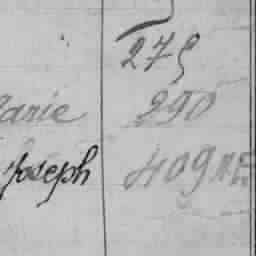 275
arie 290
Joseph 409